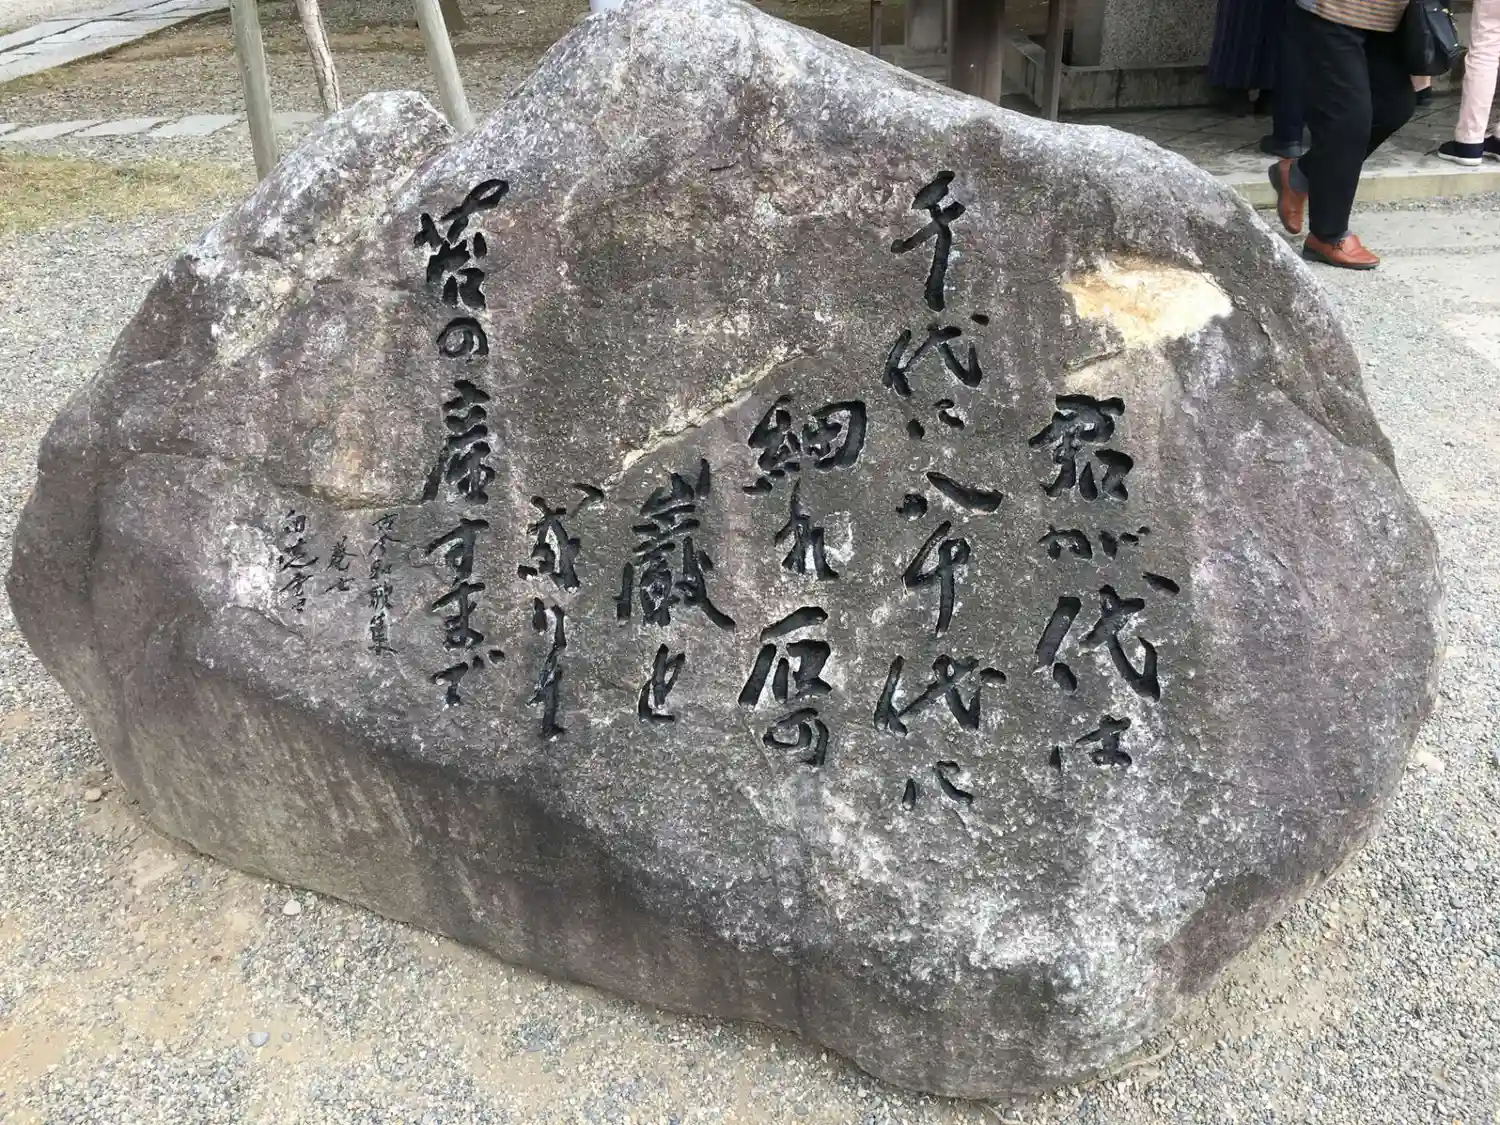 君が代は
千代に八千代に
細れ石の
巌と
成りて
苔の産すまで
古今和歌集
巻七